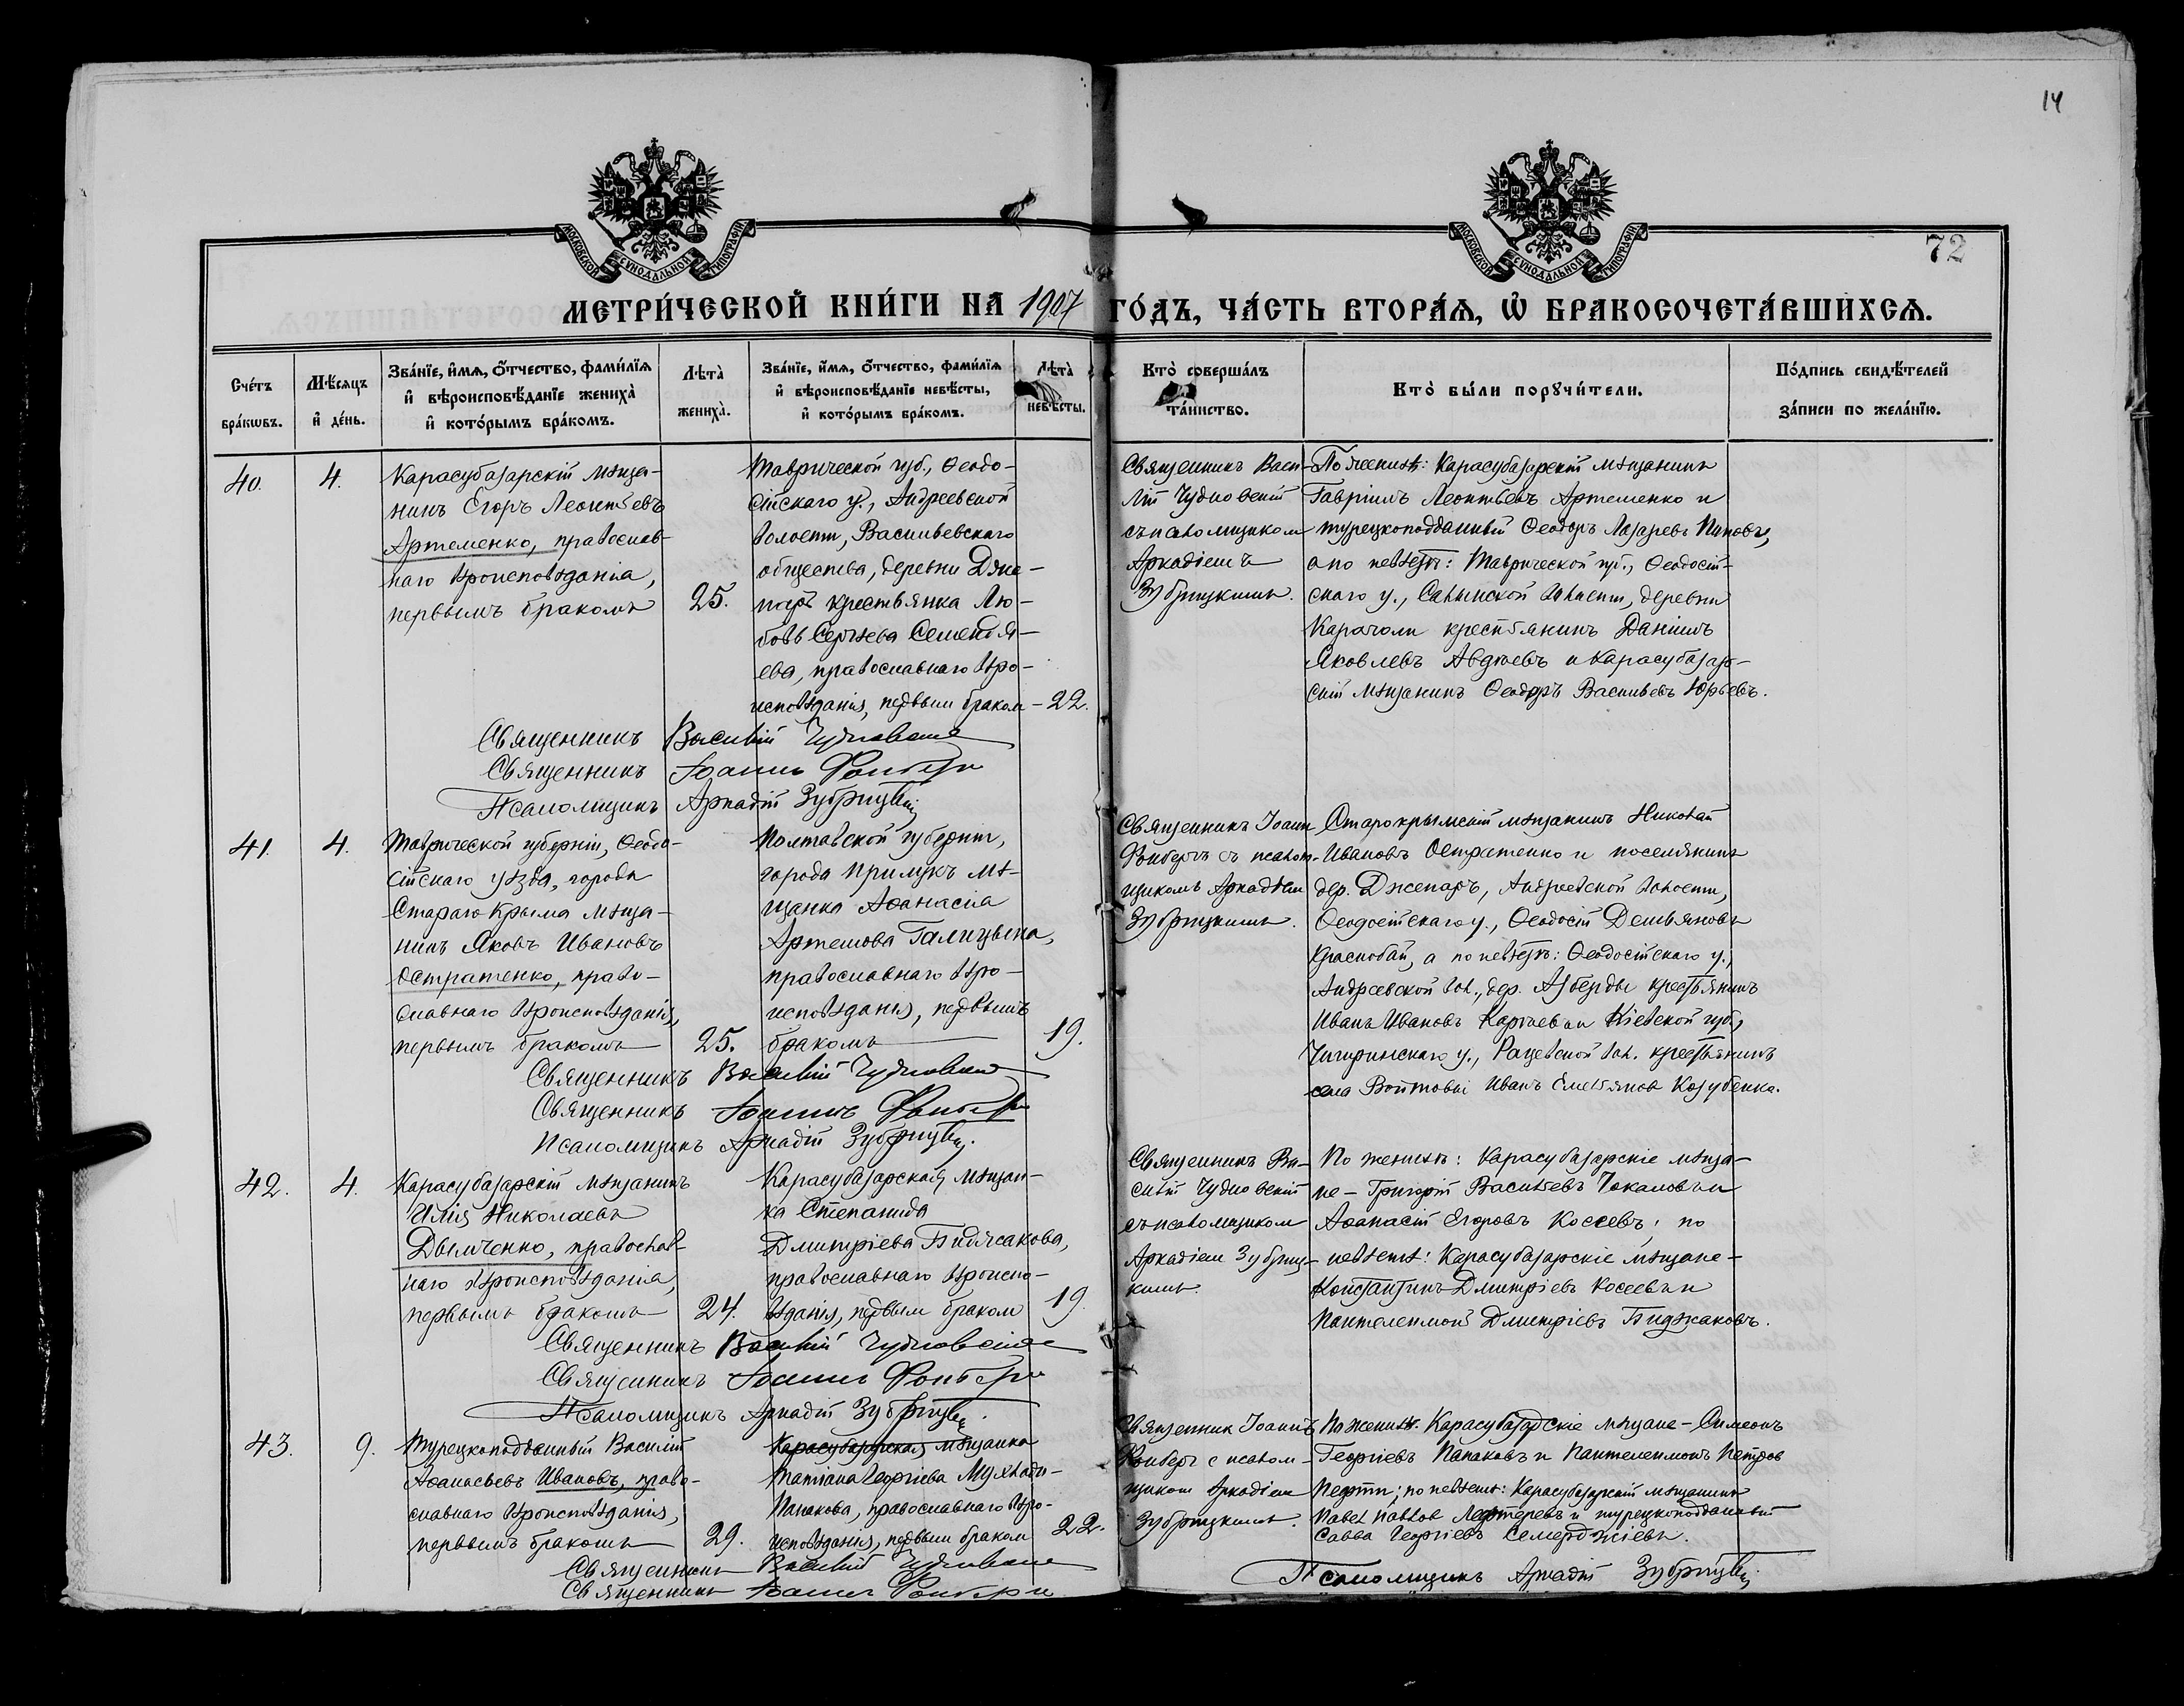 14
72
МОСКОВСКОЙ СѴНОДАЛЬНОЙ ТИПОГРАФІИ
МОСКОВСКОЙ СѴНОДАЛЬНОЙ ТИПОГРАФІИ
МЕТРИ́ЧЕСКОЙ КНИ́ГИ НА 1907 ГО́ДЪ, ЧА́СТЬ ВТОРА́Ѧ, Ѡ҆ БРАКОСОЧЕТА́ВШИХСѦ.
Сче́тъ
бра́кѡвъ.
Мѣ́сяцъ
и҆ де́нь.
Зва́нїе, и҆́мѧ, ѻ҆́тчество, фами́лїѧ
и҆ вѣроисповѣ́данїе жениха̀
и҆ кото́рымъ бра́комъ.
Лѣта̀
жениха̀.
Зва́нїе, и҆́мѧ, ѻ҆́тчество, фами́лїѧ
и҆ вѣроисповѣ́данїе невѣ́сты,
и҆ кото́рымъ бра́комъ.
Лѣта̀
невѣ́сты.
Кто̀ соверша́лъ
та́инство.
Кто̀ бы́ли порꙋчи́тели.
По́дпись свидѣ́телей
за́писи по жела́нїю.
40.
4.
Карасубазарскій мѣща-
нинъ Егоръ Леонтьевъ
Артеменко, православ-
наго вѣроисповѣданія,
первымъ бракомъ
25.
Таврической губ., Ѳеодо-
сійскаго у., Андреевской
волости, Васильевскаго
общества, деревни Джа-
паръ крестьянка Лю-
бовь Сергѣева Семенъя-
ева, православнаго вѣро-
исповѣданія, первым браком
22.
Священникъ Васи-
лій Чудновскій
съ псаломщиком
Аркадіемъ
Зубрицкимъ.
По женихѣ: Карасубазарскій мѣщанинъ
Гавріилъ Леонтьевъ Артеменко и
турецкоподданный Ѳеодоръ Лазаревъ Поповъ,
а по невѣстѣ: Таврической губ., Ѳеодосій-
скаго у., Салынской волости, деревни
Карачоли крестьянинъ Даніилъ
Яковлевъ Авдѣевъ и Карасубазар-
скій мѣщанинъ Ѳеодоръ Васильевъ Юрьевъ.
Священникъ Василій Чудновскій
Священникъ Іоаннъ
Псаломщикъ Аркадій Зубрицкій
41.
4.
Таврической губерніи, Ѳеодо-
сійскаго уѣзда, города
Стараго Крыма мѣща-
нинъ Яковъ Ивановъ
Остратенко, право-
славнаго вѣроисповѣданія,
первымъ бракомъ
25.
Полтавской губерніи,
города Прилукъ мѣ-
щанка Аѳанасія
Артемова Галицына,
православнаго вѣро-
исповѣданія, первымъ
бракомъ
19.
Священникъ Іоанн
съ псалом-
щикомъ Аркадіем
Зубрицкимъ.
Старокрымскій мѣщанинъ Николай
Ивановъ Остратенко и поселянинъ
дер. Джепаръ, Андреевской волости,
Ѳеодосійскаго у., Ѳеодосій Демьяновъ
Краснобай, а по невѣстѣ: Ѳеодосійскаго у.,
Андреевской вол., дер. Азберды крестьянинъ
Иванъ Ивановъ Каргаевъ и Кіевской губ.,
Чигиринскаго у., Рацевской вол. крестьянинъ
села Войтовы Иванъ Емельянов Козубенко.
Священникъ Василій Чудновскій
Священникъ Іоаннъ
Псаломщикъ Аркадій Зубрицкій.
42.
4.
Карасубазарскій мѣщанинъ
Илія Николаевъ
Дымченко, православ-
наго вѣроисповѣданія,
первымъ бракомъ
24.
Карасубазарская мѣщан-
ка Степанида
Дмитріева Биджакова,
православнаго вѣроиспо-
вѣданія, первым браком
19.
Священникъ Ва-
силій Чудновскій
съ псаломщиком
Аркадіем Зубриц-
кимъ.
По женихѣ: Карасубазарскіе мѣща-
не – Григорій Васильевъ Чокаловъ и
Аѳанасій Егоровъ Косеевъ; по
невѣстѣ: Карасубазарскіе мѣщане –
Константинъ Дмитріевъ Косеевъ и
Пантелеимонъ Дмитріевъ Биджаковъ.
Священникъ Василій Чудновскій
Священникъ Іоаннъ
Псаломщикъ Аркадій Зубрицкій.
43.
9.
Турецкоподданный Василій
Аѳанасьевъ Ивановъ, право-
славнаго вѣроисповѣданія,
первымъ бракомъ
29.
Карасубазарская мѣщанка
Татіана Георгіева
Папакова, православнаго вѣро-
исповѣданія, первым браком
22.
Священник Іоаннъ
с псалом-
щиком Аркадіем
Зубрицкимъ.
По женихѣ: Карасубазарскіе мѣщане – Симеонъ
Георгіевъ Папаковъ и Пантелеимонъ Петров
по невѣстѣ: Карасубазарскій мѣщанинъ
Павел Павлов Лефтеревъ и турецкоподданный
Савва Георгіевъ Семерджіевъ.
Священникъ Василій Чудновскій
Священникъ Іоаннъ
Псаломщикъ Аркадій Зубрицкій